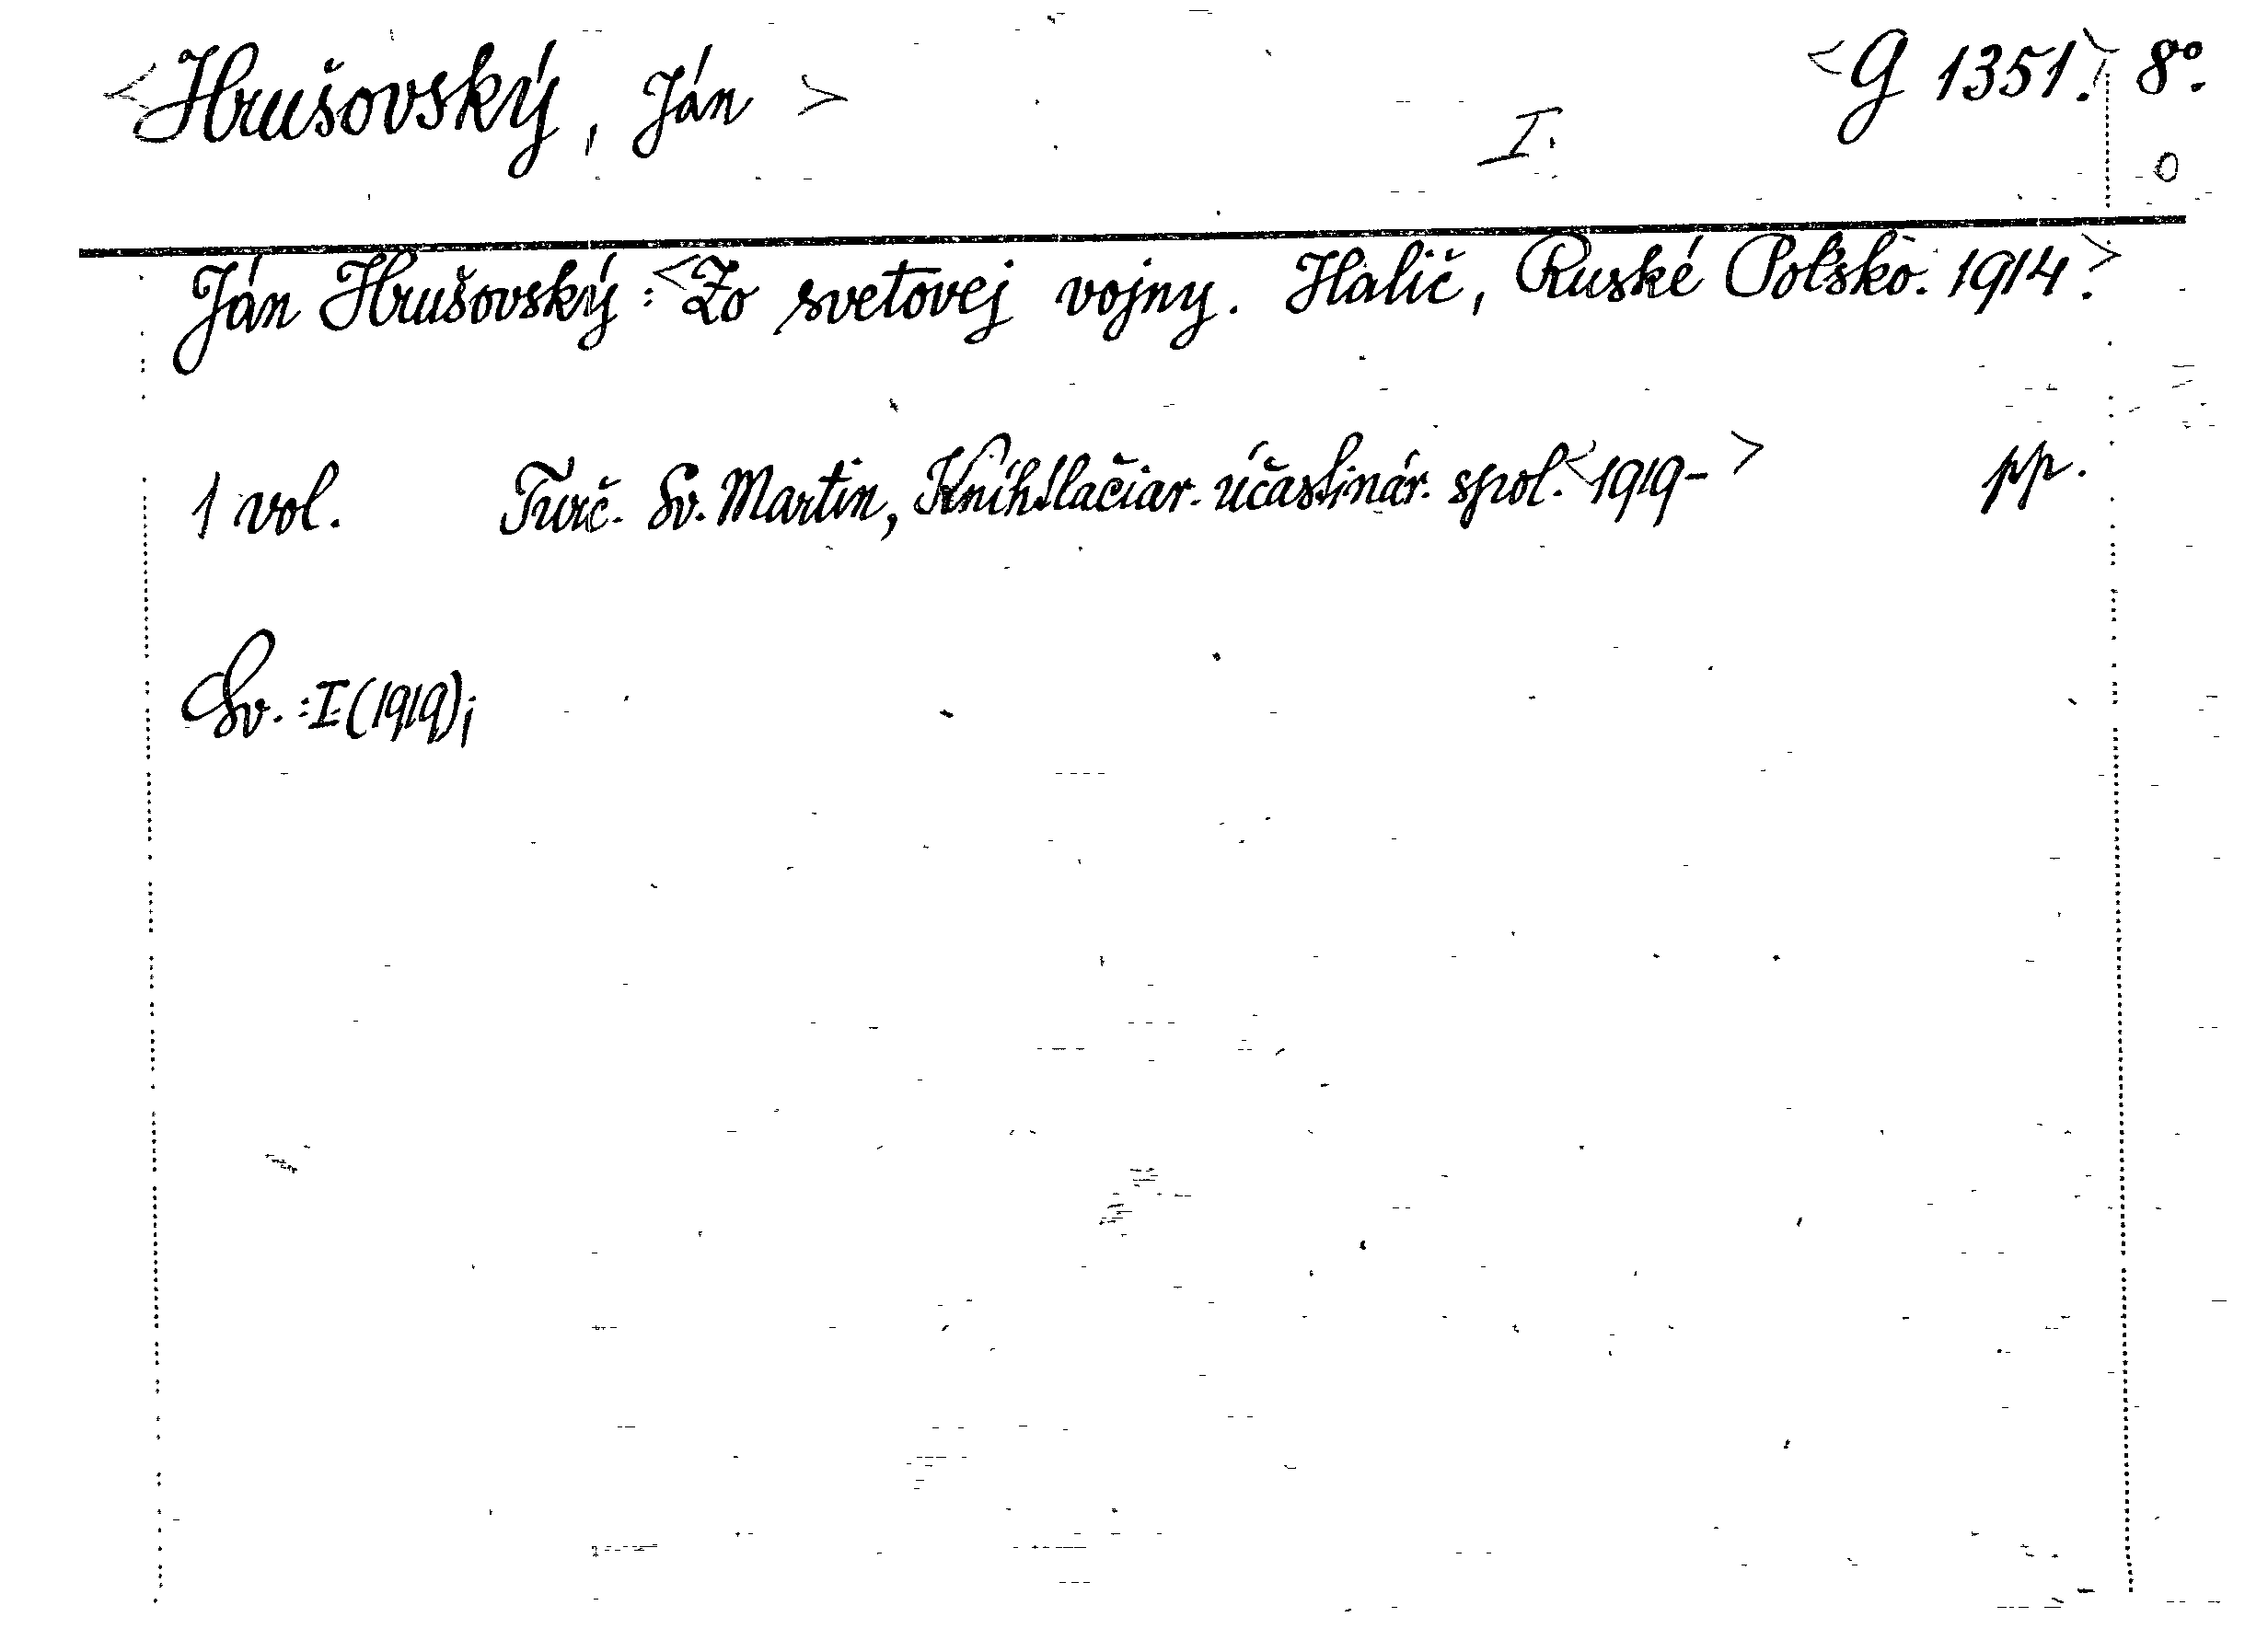 <Hrušovský, Ján> I. <G 1351.> 8°.
0
Ján Hrušovský: <Zo svetovej vojny. Halič, Ruské Poľsko. 1914.>
1 vol. Turč. Sv. Martin, Kníhtlačiar. účastinár. spol. <1919-> pp.
Sv.: I (1919);